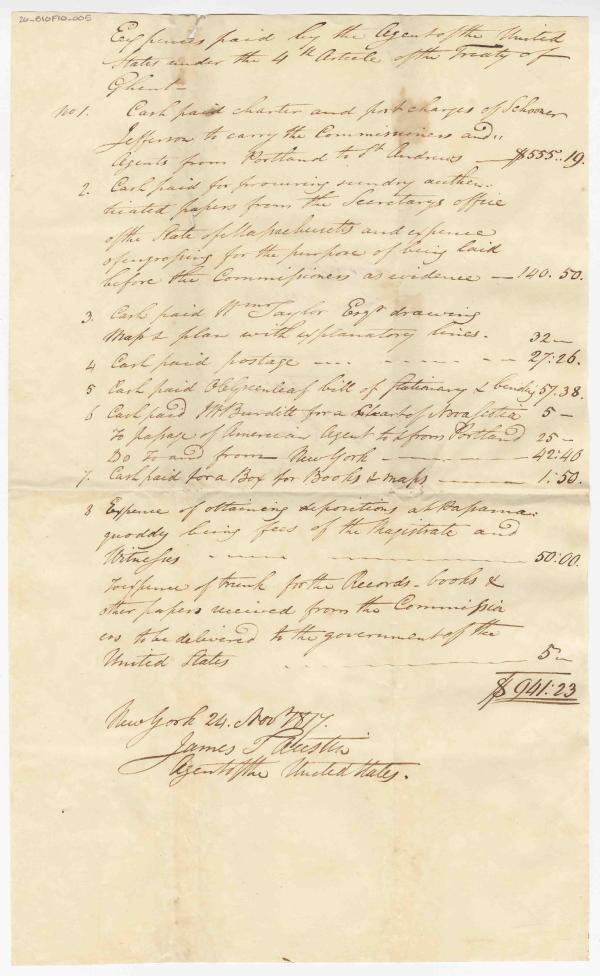 20-B10F10-005
Expences paid by the Agent of the United
States under the 4th Article of the Treaty of
Ghent—
No 1. Cash paid charter and port charges of Schooner
Jefferson to carry the Commissioners and
Agents from Portland to St Andrews — $555..19.
2. Cash paid for procuring sundry authen-
ticated papers from the Secretarys office
of the State of Massachusetts and expence
of engrossing for the purpose of being laid
before the Commissioners as evidence — 140.50.
3. Cash paid Wm Taylor Esqr drawing
Map & plan with explanatory lines. 32—
4 Cash paid postage — 27:26.
5 Cash paid O Greenleaf bill of stationary & binding 57.38.
6 Cash paid W Burditt for a Chart of Nova Scotia 5—
To passage of American Agent to & from Portland 25—
Do To and from New York — 42:40
7. Cash paid for a Box for Books & maps — 1:50.
8 Expence of obtaining depositions at Passama:
quoddy being fees of the Magistrate and
Witnesses — 50:00.
To expence of trunk for the Records - books &
other papers received from the Commission
ers to be delivered to the government of the
United States — 5—
$941:23
New York 24. Novr 1817.
James T Austin
Agent of the United States.